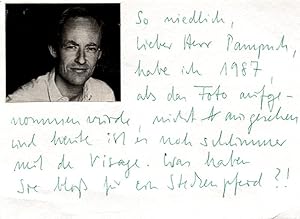 So niedlich,
lieber Herr Pampuch,
habe ich 1987,
als das Foto aufge-
nommen wurde, nicht ausgesehen
und heute ist es noch schlimmer
mit de Visage. Was haben
Sie bloß für ein Steckenpferd?!